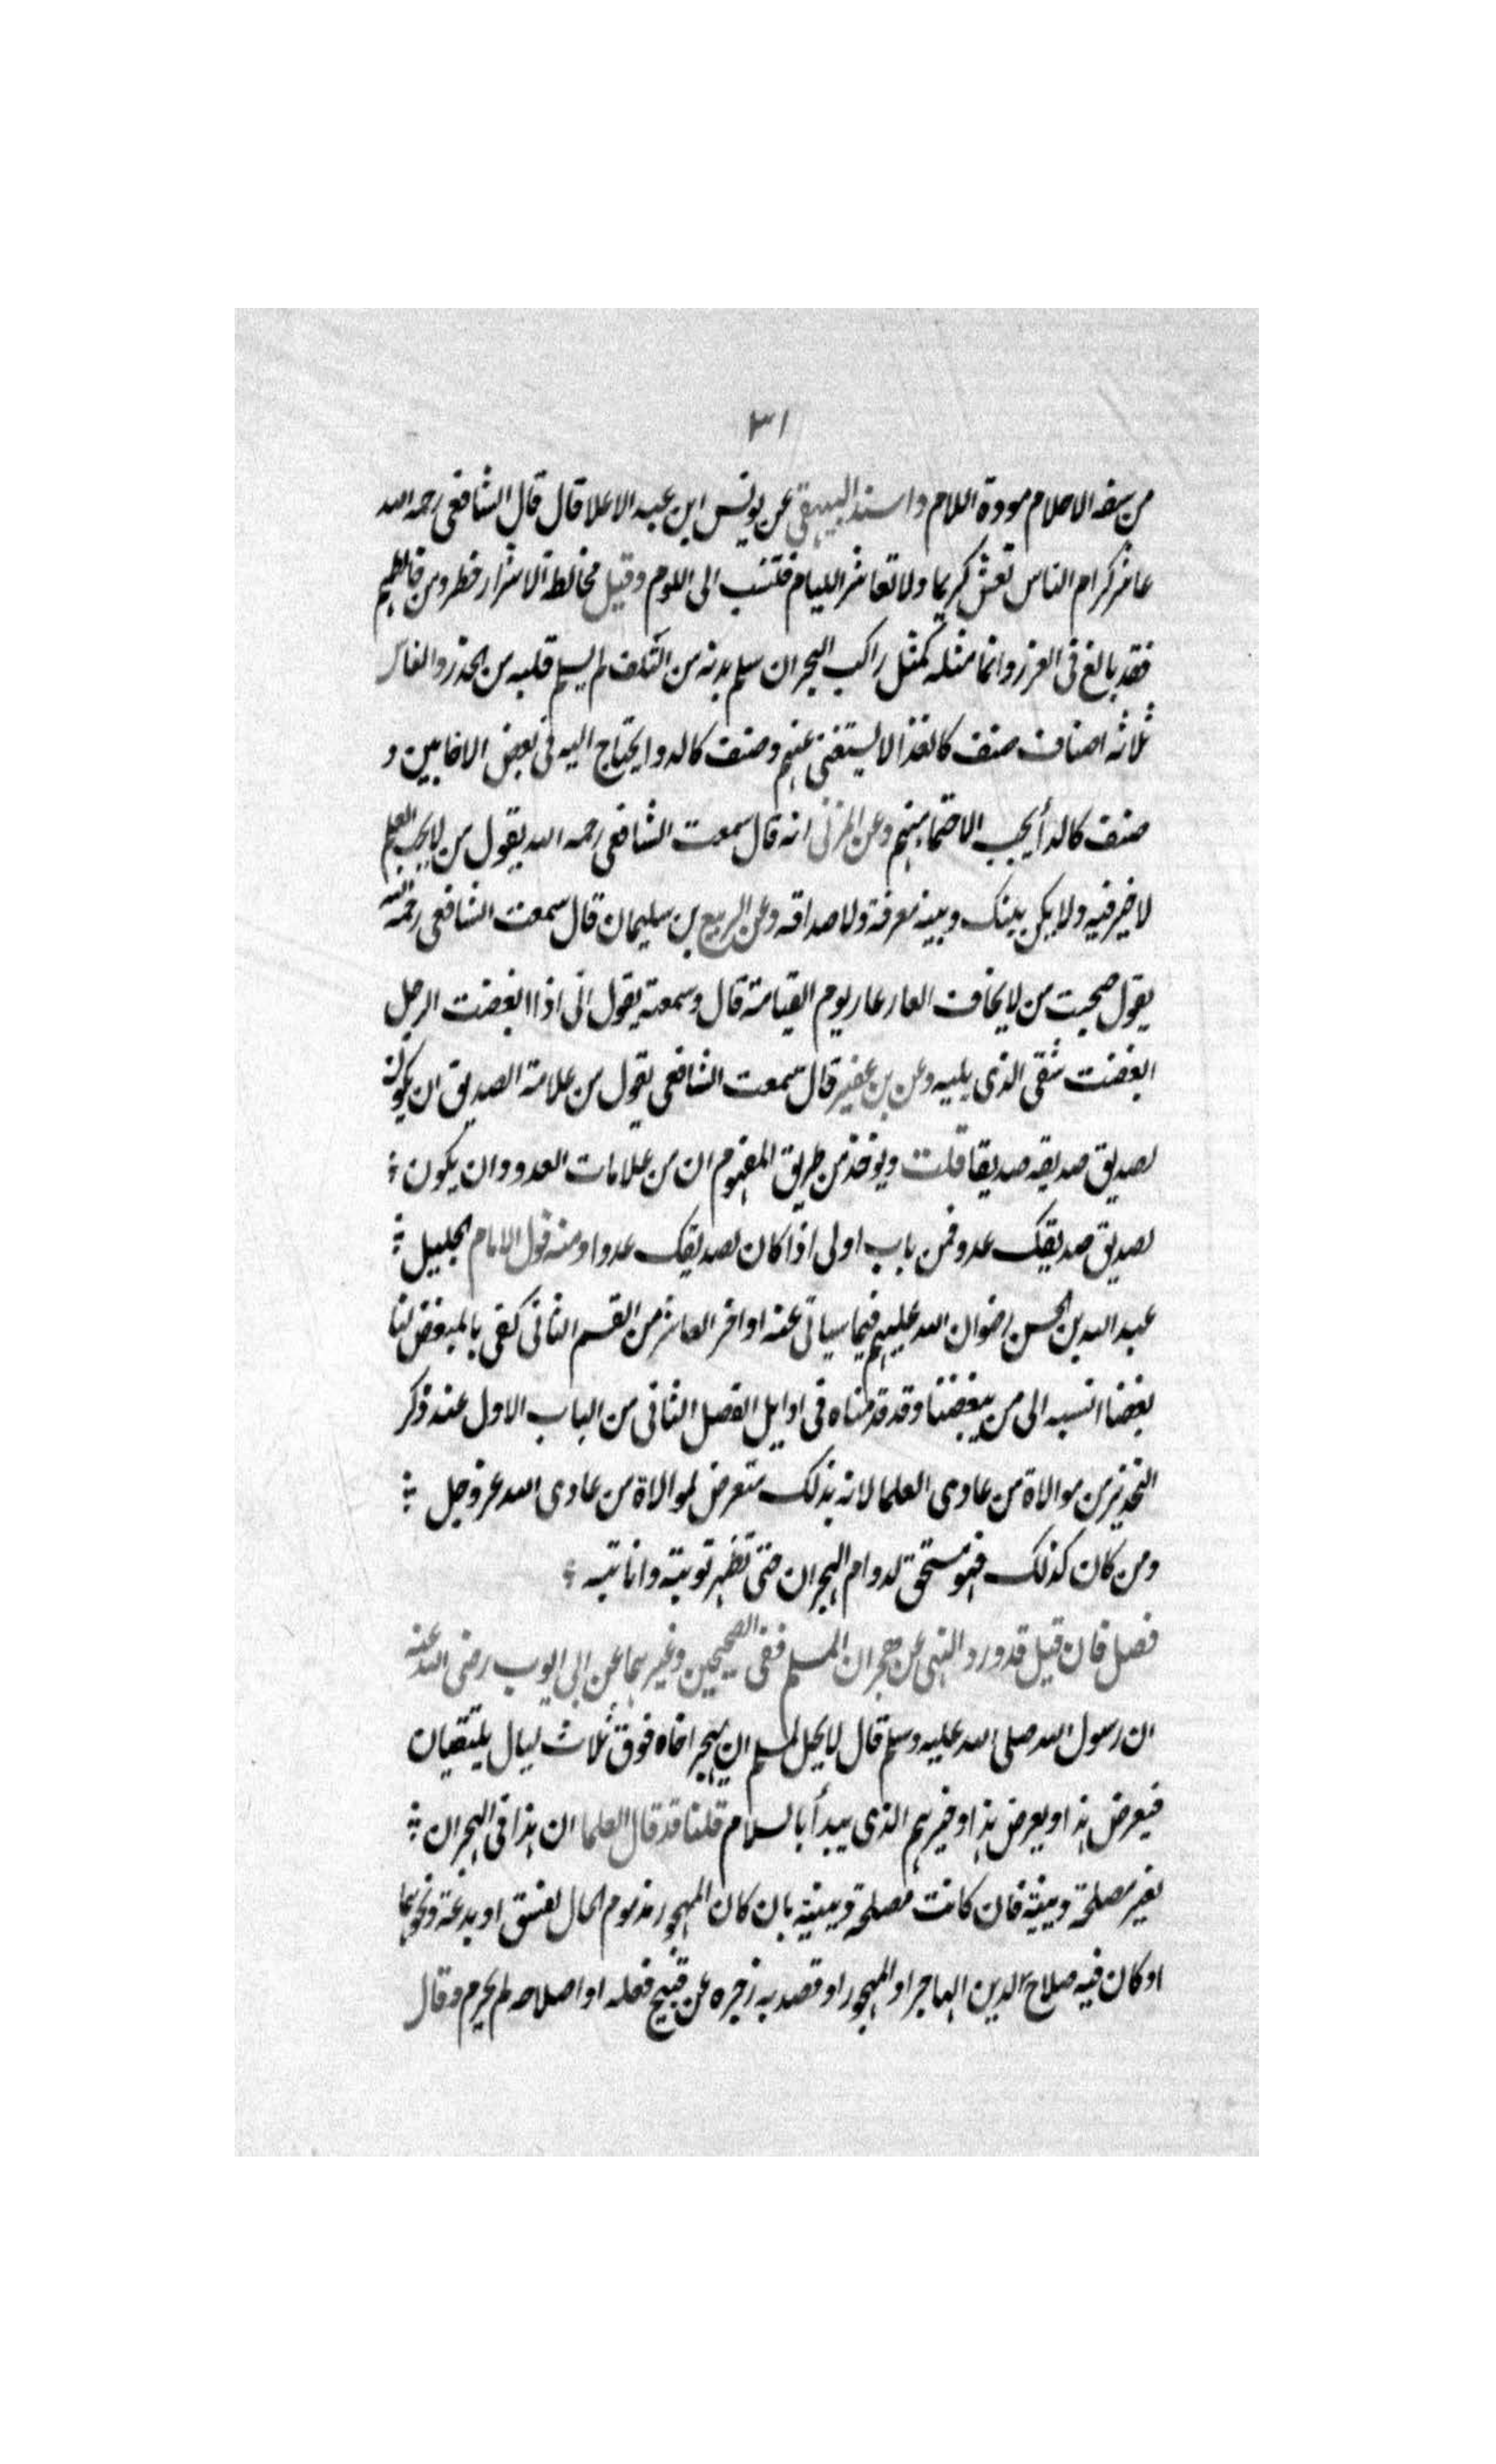 ٣١
من سفه الاحلام مودة اللام واسند البيهقي عن يونس ابن عبد الاعلا قال قال الشافعي رحمه الله
عاشر كرام الناس تعش كريما ولا تعاشر الليام فتنسب الى اللوم وقيل مخالطة الاشرار خطر ومن خالطهم
فقد بالغ في الغرر وانما مثله كمثل راكب البحر ان سلم بدنه من التلف لم يسلم قلبه من الحذر والناس
ثلاثه اصناف صنف كالغذا لا يستغنى عنهم وصنف كالدوا يحتاج اليه في بعض الاحايين و
صنف كالدأ يجب الاحتما منهم وعن المزني انه قال سمعت الشافعي رحمه الله يقول من لا يحب العلم
لا خير فيه ولا يكن بينك وبينه معرفة ولا صداقه وعن الربيع بن سليمان قال سمعت الشافعي رحمه الله
يقول صحبت من لا يخاف العار عار يوم القيامة قال وسمعته يقول اني اذا ابغضت الرجل
ابغضت شقي الذي يليه وعن بن عفير قال سمعت الشافعي يقول من علامة الصديق ان يكون
لصديق صديقه صديقا قلت ويوخذ من طريق المفهوم ان من علامات العدو وان يكون
لصديق صديقك عدو فمن باب اولى اذا كان لصديقك عدوا ومنه قول الامام الجليل
عبد الله بن الحسن رضوان الله عليهم فيما سياتي عنه اواخر العاشر من القسم الثاني كفى بالمبغض لنا
بغضا انسبه الى من يبغضنا وقد قدمناه في اوايل الفصل الثاني من الباب الاول عند ذكر
التحذير من موالاة من عادى العلما لانه بذلك متعرض لموالاة من عادى الله عز وجل
ومن كان كذلك فهو مستحق لدوام الهجران حتى تظهر توبته وانابته
فصل فان قيل قد ورد النهي عن هجران المسلم ففي الصحيحين وغيرهما عن ابي ايوب رضي الله عنه
ان رسول الله صلى الله عليه وسلم قال لا يحل لمسلم ان يهجر اخاه فوق ثلاث ليال يلتقيان
فيعرض هذا ويعرض هذا وخيرهم الذي يبدأ بالسلام قلنا قد قال العلما ان هذا في الهجران
لغير مصلحة دينية فان كانت مصلحة دينية بان كان المهجور مذموم الحال لفسق او بدعة ونحوهما
او كان فيه صلاح الدين الهاجر او المهجور او قصد به زجره عن قبيح فعله او اصلاحه لم يحرم وقال